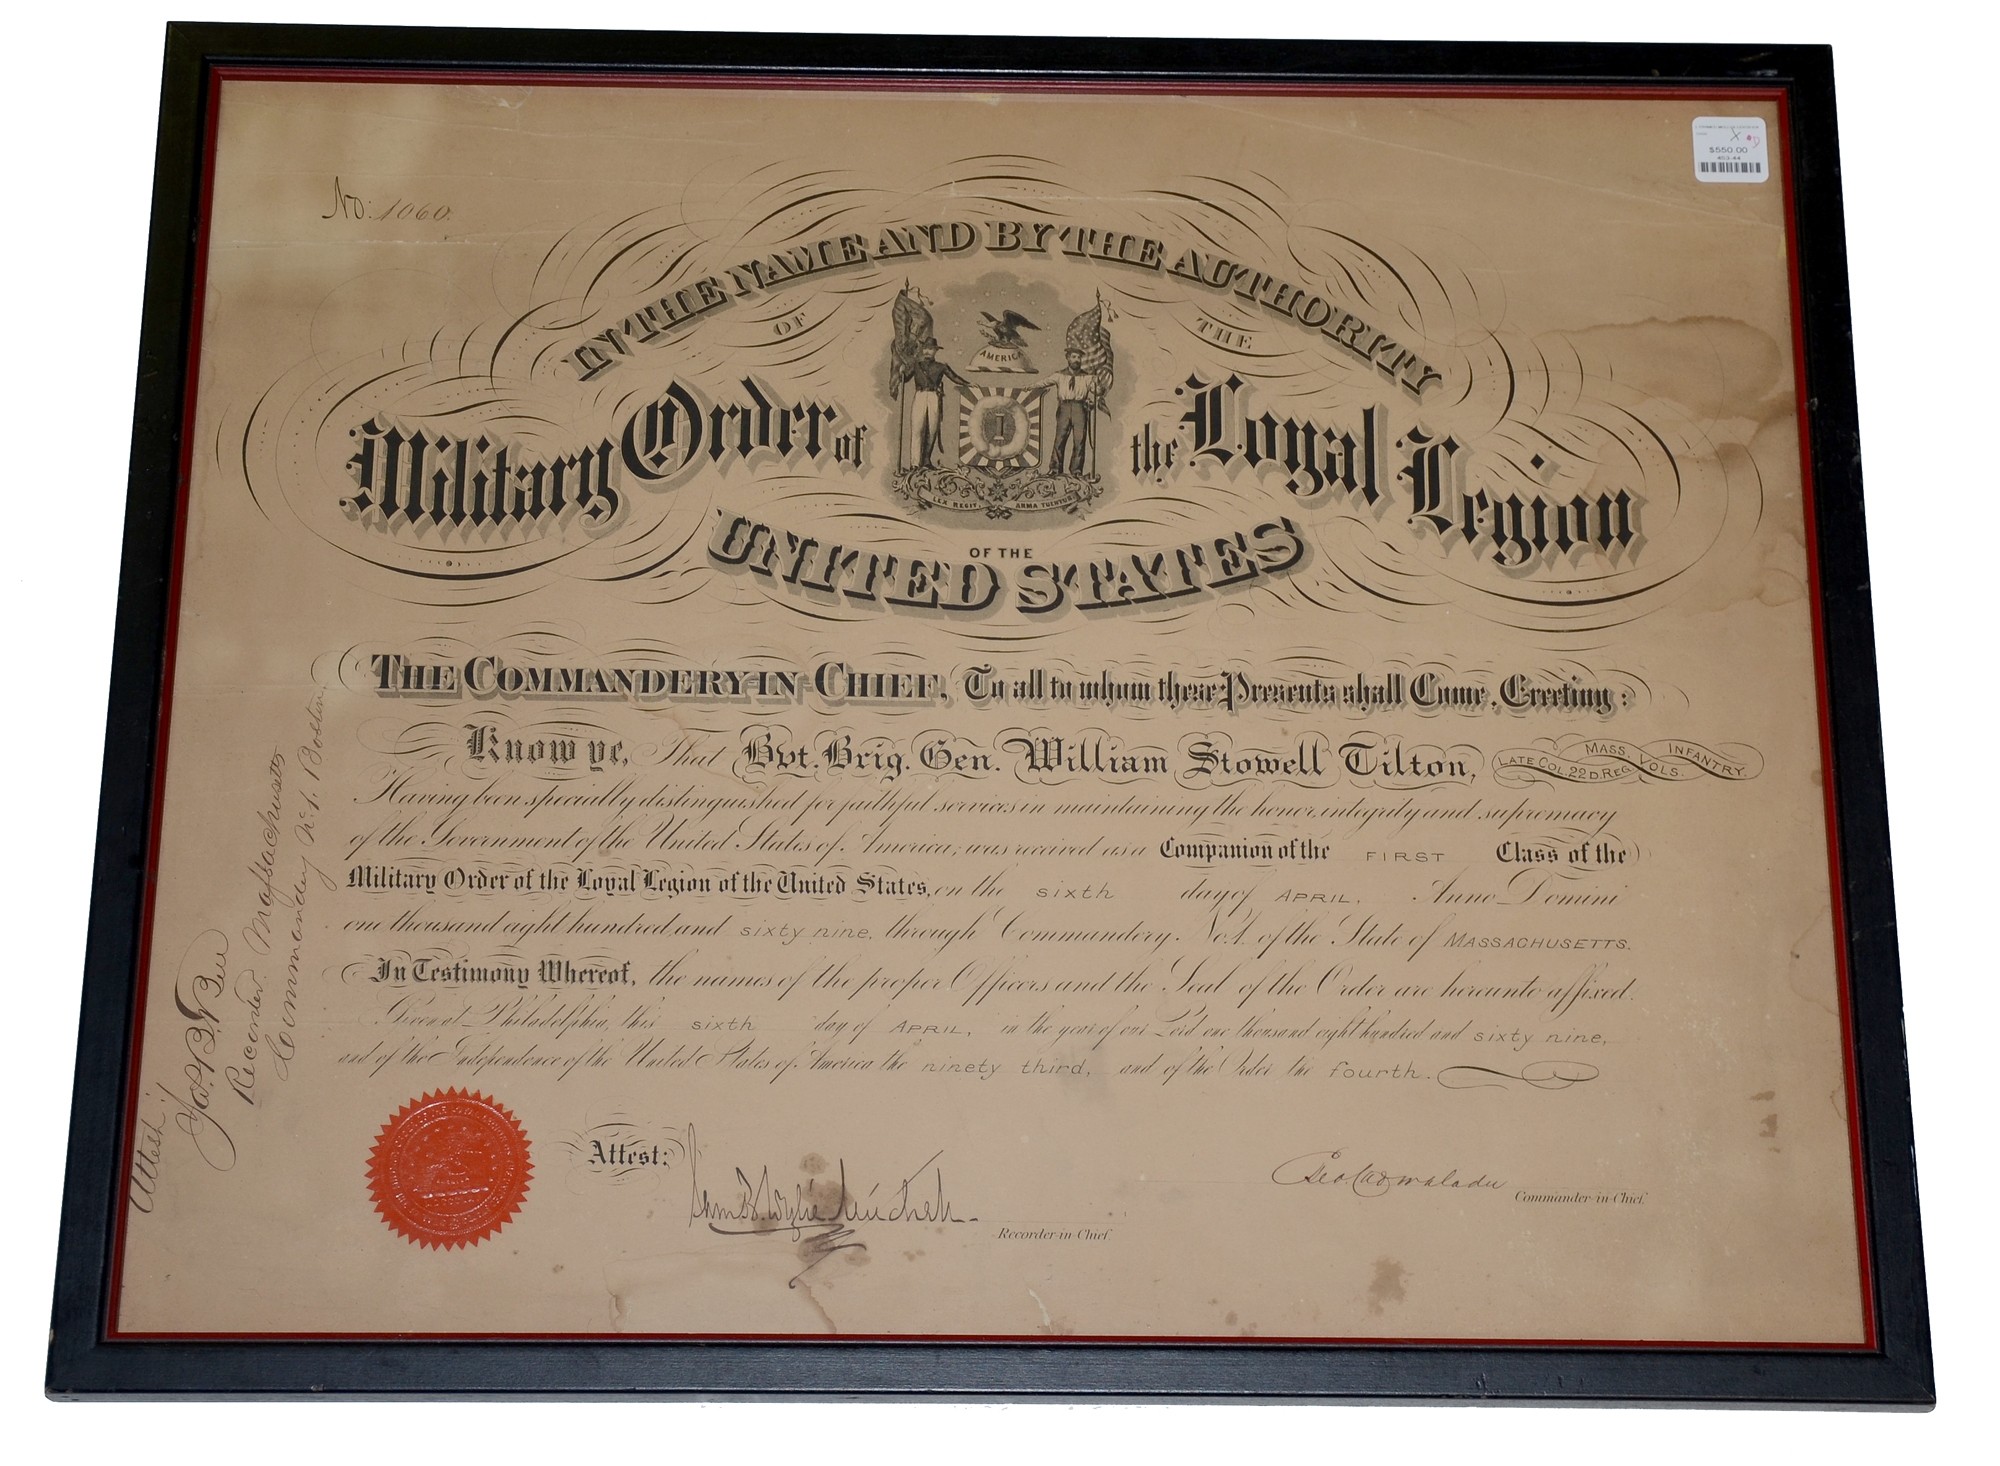 No. 1060.
$550.00
IN THE NAME AND BY THE AUTHORITY
OF THE
AMERICA
Military Order of the Loyal Legion
LEX REGIT, ARMA TUENTUR
OF THE
UNITED STATES
THE COMMANDERY-IN CHIEF, To all to whom these Presents shall Come, Greeting:
Know ye, That Bvt. Brig. Gen. William Stowell Tilton, LATE COL. 22D. REG. MASS. VOLS. INFANTRY.
Having been specially distinguished for faithful services in maintaining the honor, integrity and supremacy
of the Government of the United States of America; was received as a Companion of the FIRST Class of the
Military Order of the Loyal Legion of the United States, on the sixth day of APRIL, Anno Domini
one thousand eight hundred and sixty nine, through Commandery No. 1. of the State of MASSACHUSETTS.
In Testimony Whereof, the names of the proper Officers and the Seal of the Order are hereunto affixed.
Given at Philadelphia, this sixth day of APRIL, in the year of our Lord one thousand eight hundred and sixty nine,
and of the Independence of the United States of America the ninety third, and of the Order the fourth.
Attest:
Recorder-in-Chief.
Geo Cadwalader
Commander-in-Chief.
Attest:
Recorder. Massachusetts
Commandery No. 1. Boston.